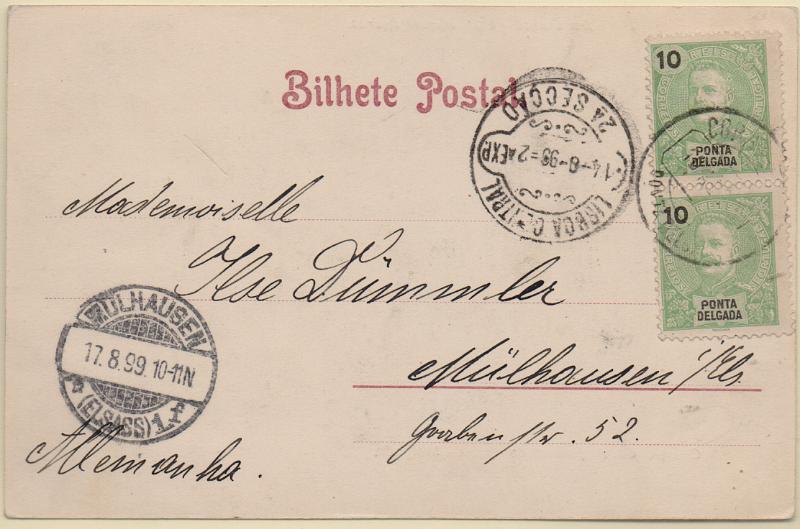 Bilhete Postal
10
PONTA
DELGADA
10
PONTA
DELGADA
LISBOA CENTRAL
2A SECÇÃO
14-8-99=2AEXP.
Mademoiselle
Ilse Dümmler
Mülhausen i/Els.
Grabenstr. 52.
Allemanha.
MÜLHAUSEN
17.8.99.10-11N
(ELSASS) 1.f